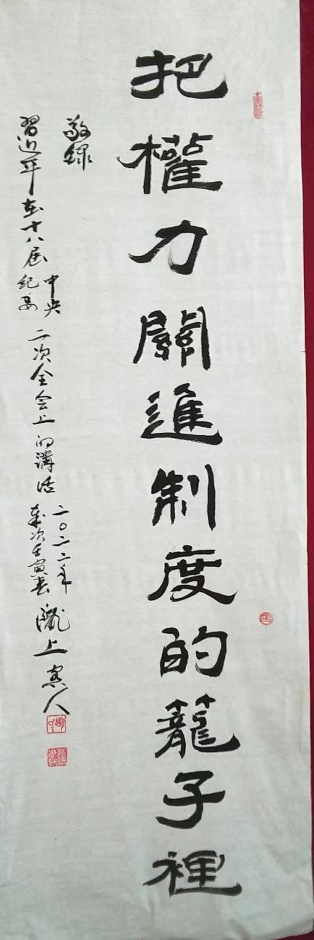 把權力關進制度的籠子裡
敬録
習近平在十八届中央紀委二次全会上的講話
二〇二二年
歲次壬寅春 隴上